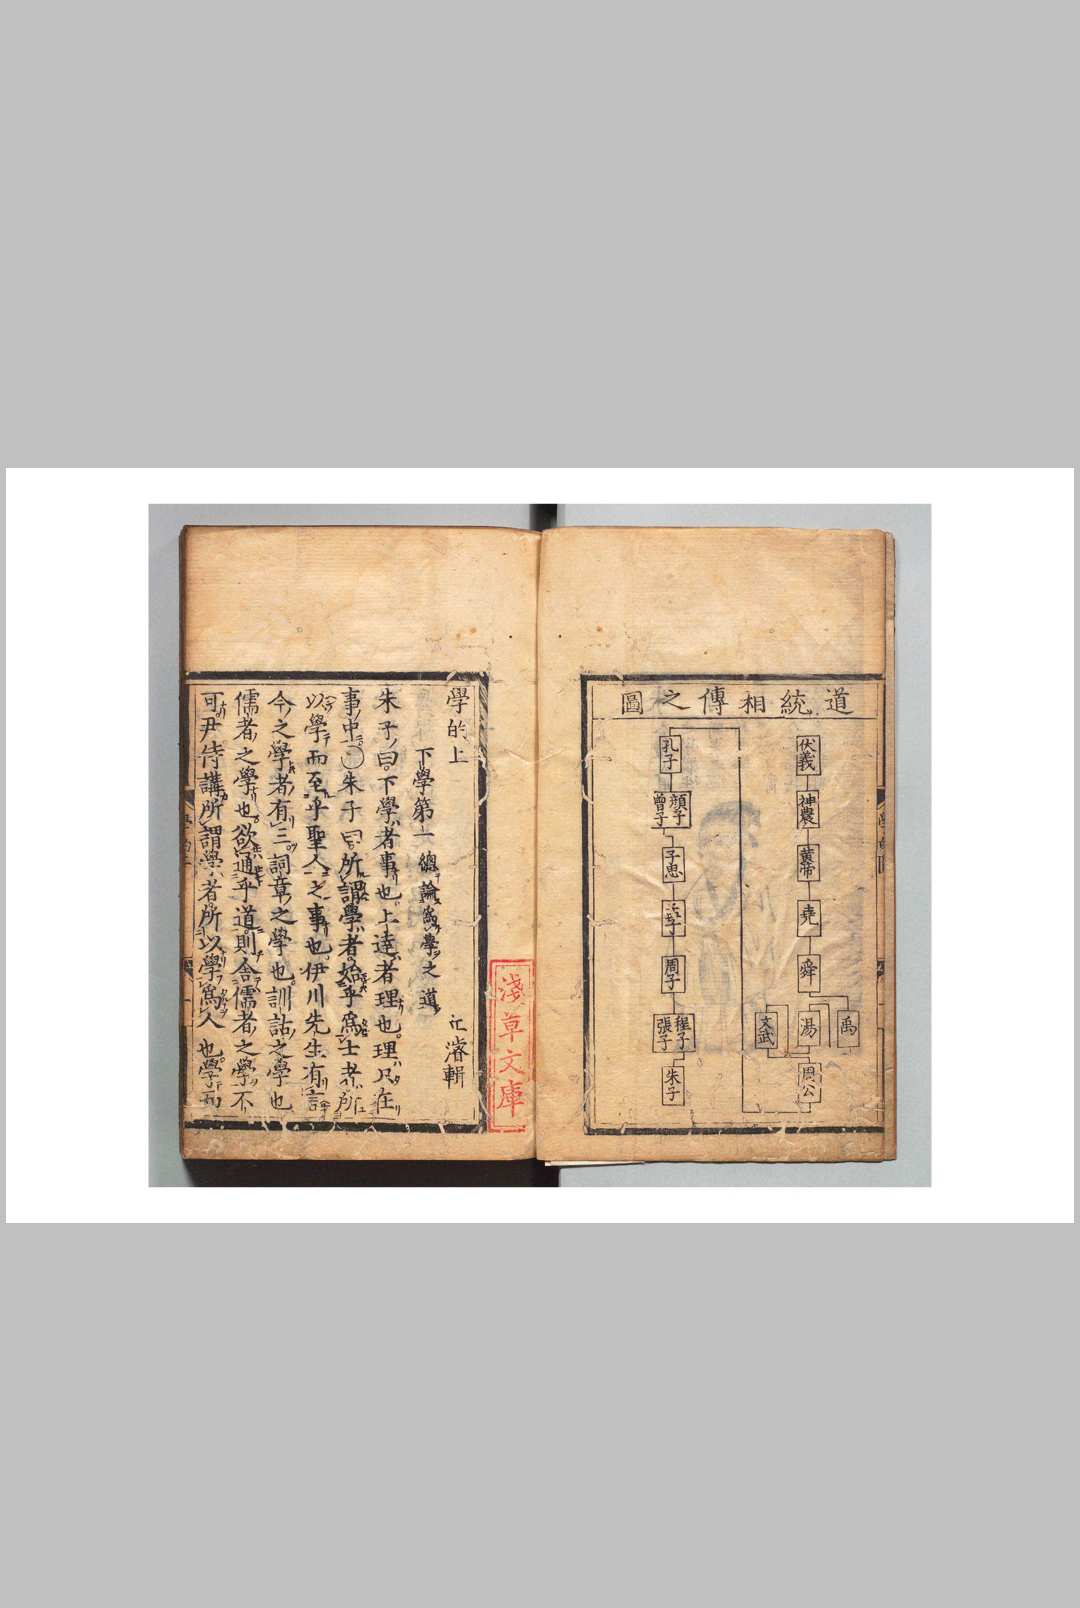 道統相傳之圖
伏羲
神農
黃帝
堯
舜
禹
湯
文武
周公
孔子
顔子
曾子
子思
孟子
周子
程子
張子
朱子
學的上
濬輯
下學第一 總論爲學之道
朱子曰下學者事也上達者理也理只在
事中〇朱子曰所謂學者始乎爲士者所
以學而至乎聖人之事也伊川先生有言
今之學者有三詞章之學也訓詁之學也
儒者之學也欲通乎道則舍儒者之學不
可尹侍講所謂學者所以學爲人也學而
淺草文庫